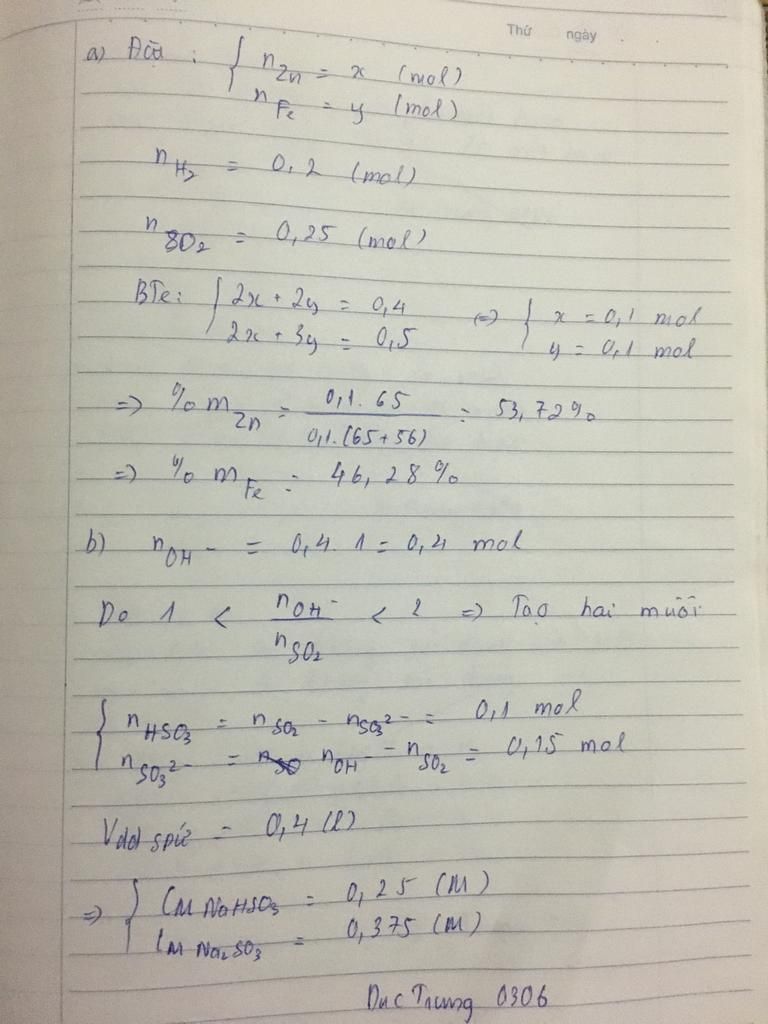 Thứ ngày
a) Đặt : { n Zn = x (mol)
n Fe = y (mol)
n H₂ = 0,2 (mol)
n SO₂ = 0,25 (mol)
BTe: { 2x + 2y = 0,4 <=> { x = 0,1 mol
2x + 3y = 0,5 y = 0,1 mol
=> % m Zn = 0,1. 65 / 0,1.(65+56) = 53,72%
=> % m Fe = 46,28%
b) n OH⁻ = 0,4. 1 = 0,4 mol
Do 1 < n OH⁻ / n SO₂ < 2 => Tạo hai muối
{ n HSO₃⁻ = n SO₂ - n SO₃²⁻ = 0,1 mol
n SO₃²⁻ = n OH⁻ - n SO₂ = 0,15 mol
Vdd spứ = 0,4 (l)
=> { CM NaHSO₃ = 0,25 (M)
CM Na₂SO₃ = 0,375 (M)
Duc Trung 0306